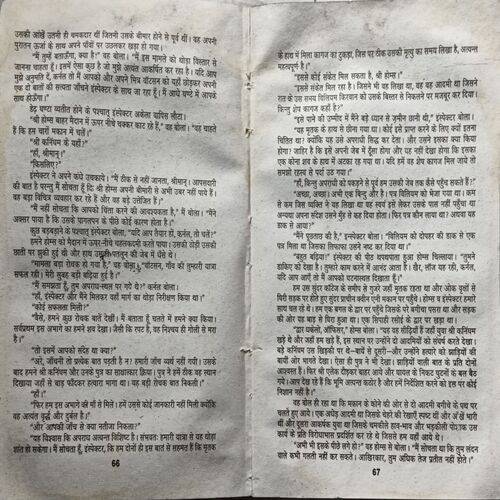 उसकी आंखें उतनी ही चमकदार थीं जितनी उसके बीमार होने से पूर्व थीं। वह अपनी
पुरातन ऊर्जा के साथ अपने पाँवों पर उछलकर खड़ा हो गया।
"मैं तुम्हें बताऊँगा, क्या है।" वह बोला। "मैं इस मामले को थोड़ा विस्तार से
जानना चाहता हूँ। इसमें ऐसा कुछ है जो मुझे अत्यंत आकर्षित कर रहा है। यदि आप
मुझे अनुमति दें, कर्नल तो मैं आपको और अपने मित्र वॉटसन को यहाँ छोड़कर अपनी
एक दो बातों की सत्यता जाँचने इंस्पेक्टर के साथ जा रहा हूँ। मैं आधे घण्टे में आपके
साथ होऊँगा।"
डेढ़ घण्टा व्यतीत होने के पश्चात् इंस्पेक्टर अकेला वापिस लौटा।
"श्री होम्स बाहर मैदान में ऊपर नीचे चक्कर काट रहे हैं," वह बोला। "वह चाहते
हैं कि हम चारों मकान में चलें।"
"श्री कनिंघम के यहाँ?"
"हाँ, श्रीमान्।"
"किसलिए?"
इंस्पेक्टर ने अपने कंधे उचकाये। "मैं ठीक से नहीं जानता, श्रीमान्। आपसदारी
की बात है परन्तु मैं सोचता हूँ कि श्री होम्स अपनी बीमारी से अभी उबर नहीं पाये हैं।
वह बड़ा विचित्र व्यवहार कर रहे हैं और वह बड़े उत्तेजित हैं।"
"मैं नहीं सोचता कि आपको चिंता करने की आवश्यकता है," मैं बोला। "मैंने
अक्सर पाया है कि उसके पागलपन के पीछे कोई कारण होता है।"
कुछ बड़बड़ाने के पश्चात् इंस्पेक्टर बोला। "यदि आप तैयार हों, कर्नल, तो चलें?"
हमने होम्स को मैदान में ऊपर-नीचे चहलकदमी करते पाया। उसकी ठोड़ी उसकी
छाती पर झुकी थी और हाथ उसकी पतलून की जेब में धँसे थे।
"मामला बड़ा रोचक हो गया है," वह बोला। "वॉटसन, गाँव की तुम्हारी यात्रा
सफल रही। मेरी सुबह बड़ी बढ़िया हुई है।"
"मैं समझता हूँ, तुम अपराध-स्थल पर गये थे?" कर्नल बोला।
"हाँ, इंस्पेक्टर और मैंने मिलकर वहाँ मार्ग का थोड़ा निरीक्षण किया था।"
"कोई सफलता मिली?"
"वैसे, हमने कुछ रोचक बातें देखीं। मैं बताता हूँ चलते में हमने क्या किया।
सर्वप्रथम इस अभागे का हमने शव देखा। जैसी कि रपट है, वह निश्चय ही गोली से मरा
है।"
"तो इसमें आपको संदेह था क्या?"
"अरे, जाँचनी तो प्रत्येक बात पड़ती है न? हमारी जाँच व्यर्थ नहीं गयी। उसके
बाद हमने श्री कनिंघम और उनके पुत्र का साक्षात्कार किया। पुत्र ने हमें ठीक वह स्थान
दिखाया जहाँ से बाड़ फाँदकर हत्यारा भागा था। वह बड़ी रोचक बात निकली।"
"हाँ।"
"फिर हम इस अभागे की माँ से मिले। हमें उससे कोई जानकारी नहीं मिली क्योंकि
वह अत्यंत वृद्ध और दुर्बल है।"
"और आपकी जाँच से क्या नतीजा निकला?"
"यह विश्वास कि अपराध अत्यन्त विशिष्ट है। संभवतः हमारी यात्रा से यह थोड़ा
शांत हो सकेगा। मैं सोचता हूँ, इंस्पेक्टर, कि हम दोनों ही इस बात से सहमत हैं कि मृतक
66
के हाथ में मिला कागज का टुकड़ा, जिस पर ठीक उसकी मृत्यु का समय लिखा है, अत्यन्त
महत्वपूर्ण है।"
"इससे कोई संकेत मिल सकता है, श्री होम्स।"
"इससे संकेत मिल रहा है। जिसने भी वह लिखा था, वह वह आदमी था जिसने
रात के उस समय विलियम किरवान को उसके बिस्तर से निकलने पर मजबूर कर दिया।
किन्तु शेष कागज कहाँ है?"
"इसे पाने की उम्मीद में मैंने बड़े ध्यान से ज़मीन छानी थी," इंस्पेक्टर बोला।
"वह मृतक के हाथ से छीना गया था। कोई इसे प्राप्त करने के लिए क्यों इतना
चिंतित था? क्योंकि यह उसे अपराधी सिद्ध कर देता। और उसने इसका क्या किया
होगा? जाहिर है कि इसे अपनी जेब में ठूँसा होगा और यह नहीं देखा होगा कि इसका
एक कोना शव के हाथ में अटका रह गया था। यदि हमें वह शेष कागज मिल जाये तो
समझो रहस्य से पर्दा उठ गया।"
"हाँ, किन्तु अपराधी को पकड़ने से पूर्व हम उसकी जेब तक कैसे पहुँच सकते हैं?"
"अच्छा, अच्छा। अभी एक बिन्दु और है। पत्र विलियम को भेजा गया था। कम
से कम जिस व्यक्ति ने वह लिखा था वह स्वयं इसे लेकर उसके पास नहीं पहुँचा था
अन्यथा अपना संदेश उसने मुँह से कह दिया होता। फिर पत्र कौन लाया था? अथवा वह
डाक से आया?"
"मैंने पूछताछ की है," इन्स्पेक्टर बोला। "विलियम को दोपहर की डाक से एक
पत्र मिला था जिसका लिफाफा उसने नष्ट कर दिया था।"
"बहुत बढ़िया!" इंस्पेक्टर की पीठ थपथपाता हुआ होम्स चिल्लाया। "तुमने
डाकिए को देखा है। तुम्हारे साथ काम करने में आनंद आता है। खैर, लॉज यह रही, कर्नल,
यदि आप आएँ तो मैं आपको घटनास्थल दिखाता हूँ।"
हम उस सुंदर कॉटेज के समीप से गुजरे जहाँ मृतक रहता था और ओक वृक्षों से
घिरी सड़क पर होते हुए सुन्दर प्राचीन क्वीन एनी मकान पर पहुँचे। होम्स व इंस्पेक्टर हमारे
साथ चल रहे थे। हम एक बगल के द्वार पर पहुँचे जिसके परे बगीचा पड़ता था और सड़क
की ओर वह बाड़ से घिरा हुआ था। एक सिपाही रसोई के द्वार पर खड़ा था।
"द्वार धकेलो, ऑफिसर," होम्स बोला। "यह वह सीढ़ियाँ हैं जहाँ युवा श्री कनिंघम
खड़े थे और जहाँ हम खड़े हैं, इस स्थान पर उन्होंने दो आदमियों को संघर्ष करते देखा।
बड़े कनिंघम उस खिड़की पर थे—बायें से दूसरी—और उन्होंने हत्यारे को झाड़ियों की
बायीं ओर भागते देखा। ऐसा ही पुत्र ने भी देखा। झाड़ियों वाली बात के प्रति दोनों
आश्वस्त हैं। फिर श्री एलेक दौड़कर बाहर आये और घायल के निकट घुटनों के बल बैठ
गये। आप देख रहे हैं कि भूमि अत्यन्त कठोर है और हमें निर्देशित करने को इस पर कोई
निशान नहीं है।"
वह बोल ही रहा था कि मकान के कोने की ओर से दो आदमी बगीचे के पथ पर
चलते हुए आये। एक अधेड़ आदमी था जिसके चेहरे की रेखाएँ स्पष्ट थीं और आँखें भारी
थीं और दूसरा आकर्षक युवा था जिसके चमकीले हाव-भाव और भड़कीली पोशाक उस
कार्य के प्रति विरोधाभास प्रदर्शित कर रहे थे जिससे हम वहाँ आये थे।
"अभी भी इसके पीछे लगे हो?" वह होम्स से बोला। "मैं सोचता था कि तुम लंदन
वाले कभी गलती नहीं कर सकते। आखिरकार, तुम अधिक तेज प्रतीत नहीं होते।"
67